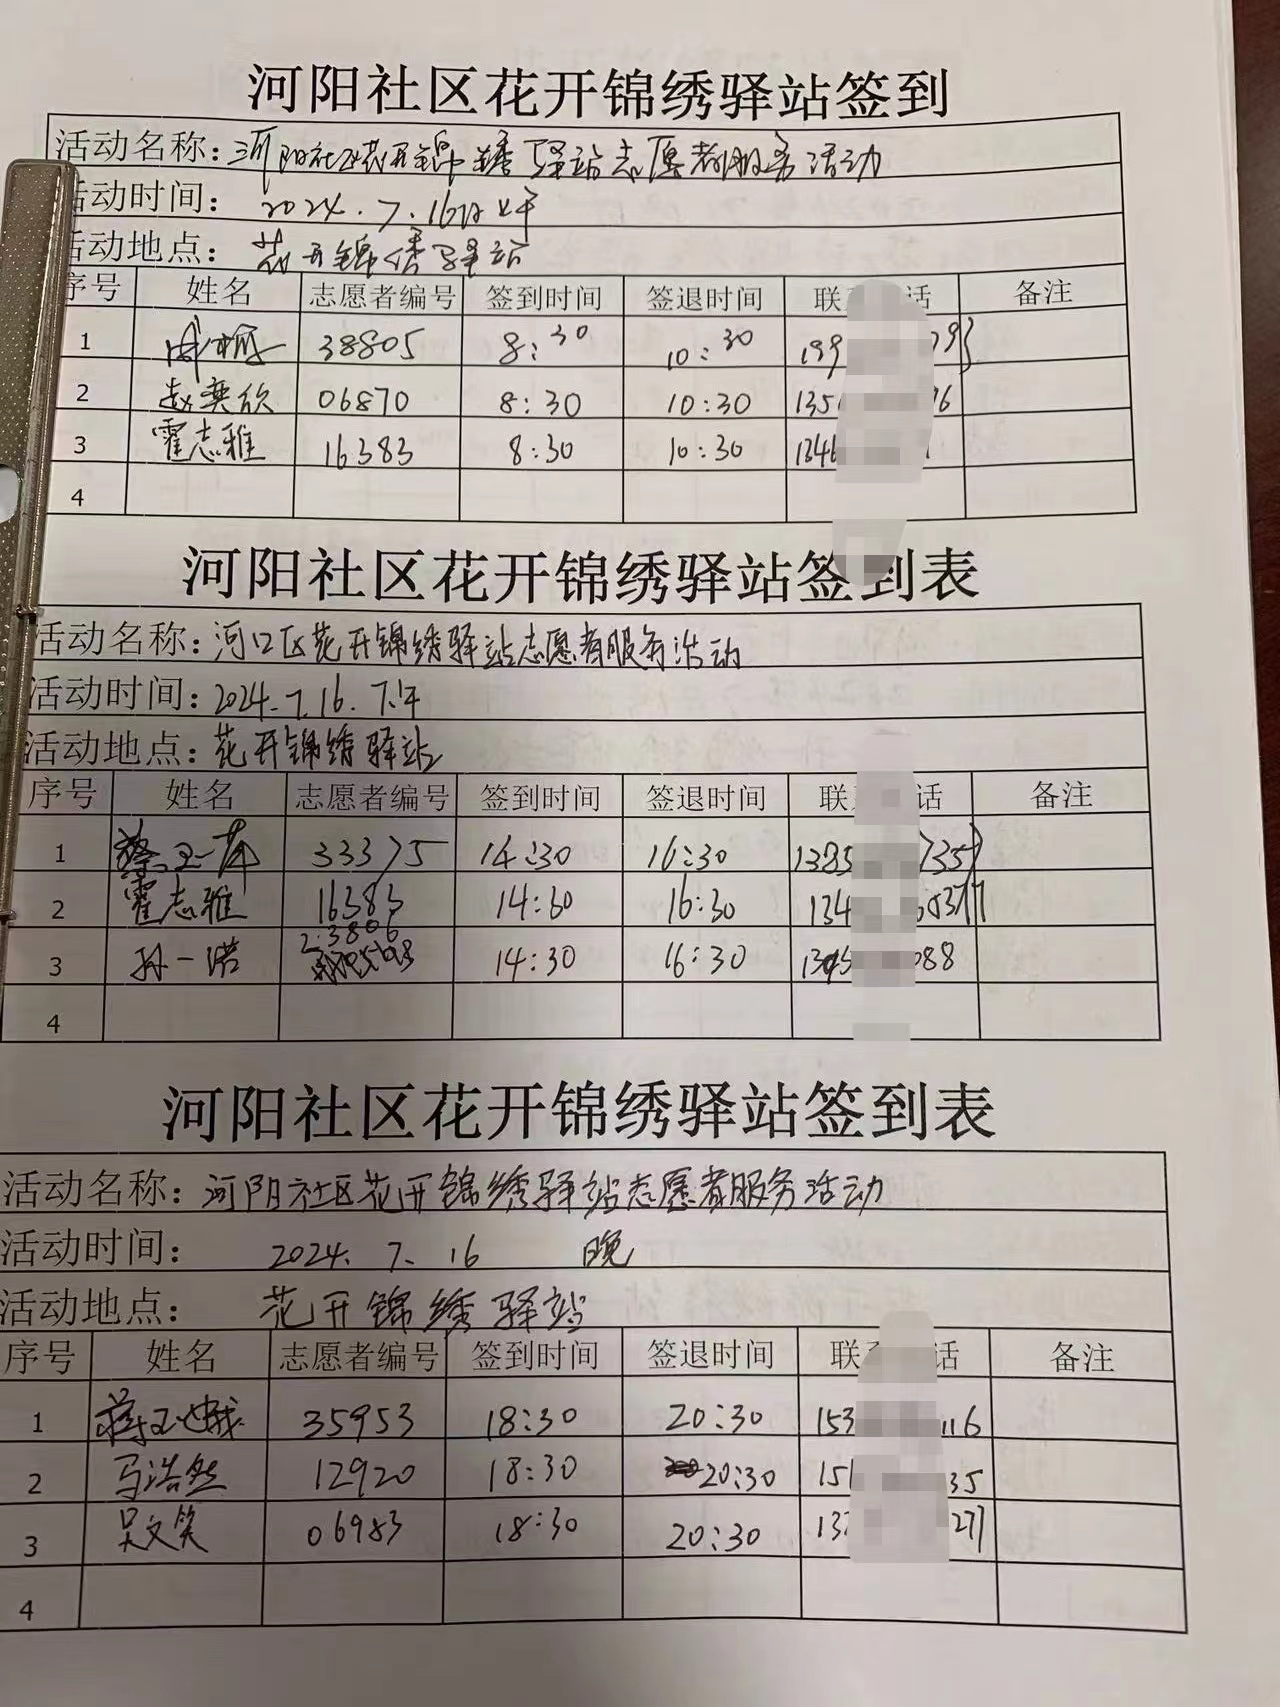 河阳社区花开锦绣驿站签到
活动名称：河阳社区花开锦绣驿站志愿者服务活动
活动时间： 2024.7.16日上午
活动地点： 花开锦绣驿站
序号 姓名 志愿者编号 签到时间 签退时间 联 话 备注
1 38805 8:30 10:30 199
2 赵奕欣 06870 8:30 10:30 135 76
3 霍志雅 16383 8:30 10:30 134
4
河阳社区花开锦绣驿站签到表
活动名称：河口区花开锦绣驿站志愿者服务活动
活动时间：2024.7.16.下午
活动地点：花开锦绣驿站
序号 姓名 志愿者编号 签到时间 签退时间 联 话 备注
1 33375 14:30 16:30 1385 735
2 霍志雅 16383 14:30 16:30 134 5377
3 孙一诺 23806 14:30 16:30 088
4
河阳社区花开锦绣驿站签到表
活动名称：河阳社区花开锦绣驿站志愿者服务活动
活动时间： 2024.7.16 晚
活动地点： 花开锦绣驿站
序号 姓名 志愿者编号 签到时间 签退时间 联 话 备注
1 35953 18:30 20:30 153 116
2 马浩然 12920 18:30 20:30 151 35
3 吴文笑 06983 18:30 20:30 137 277
4